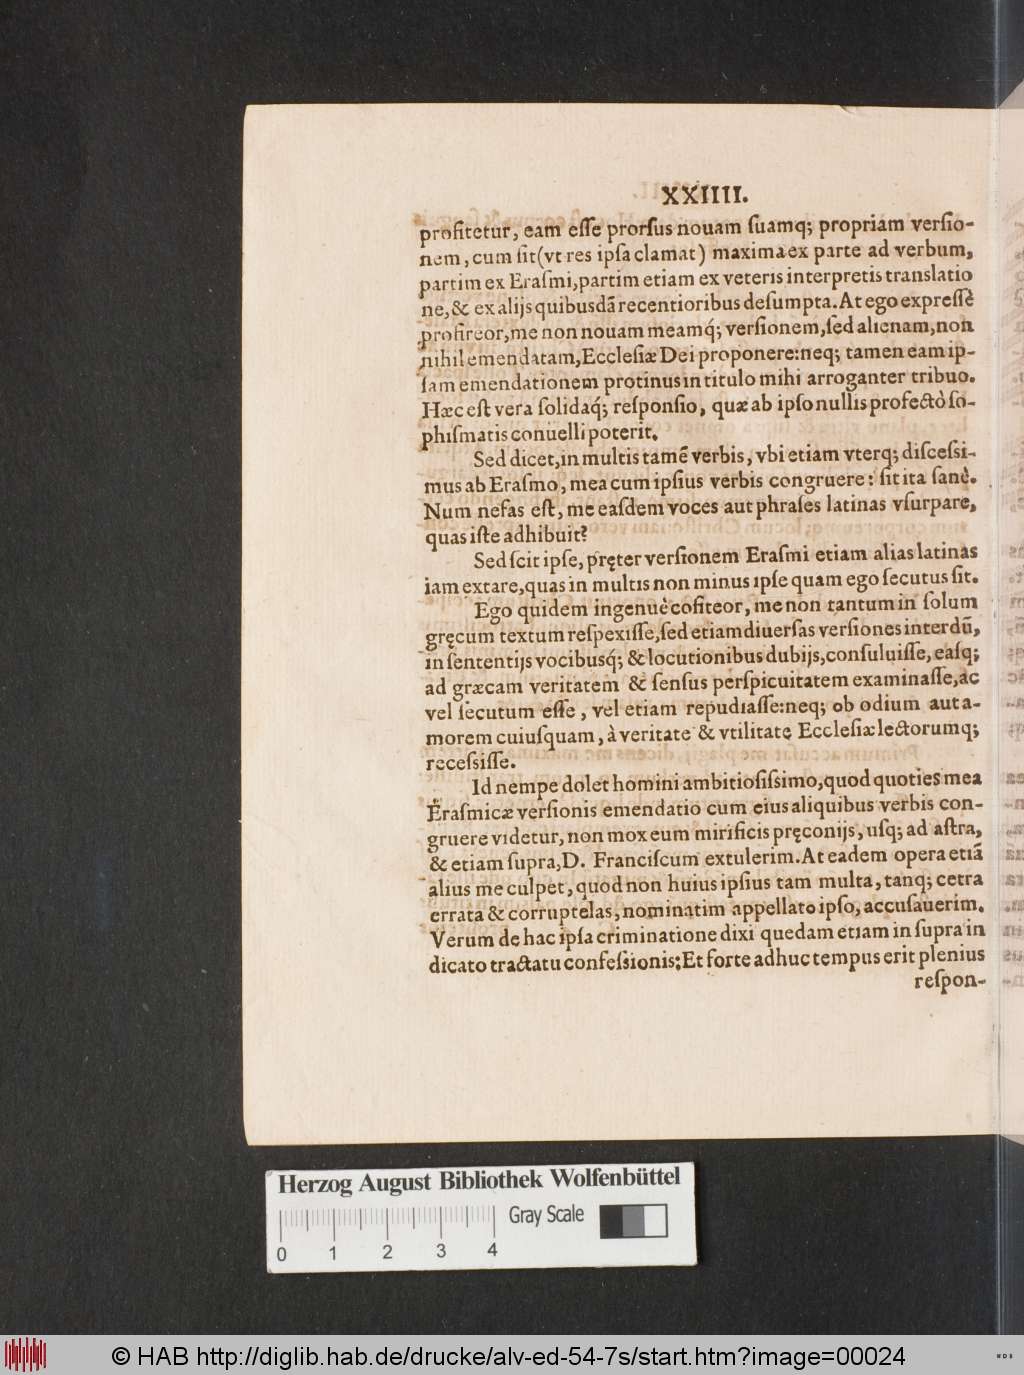 XXIIII.
profitetur, eam eſſe prorſus nouam ſuamq; propriam verſio-
nem, cum ſit (vt res ipſa clamat) maxima ex parte ad verbum,
partim ex Eraſmi, partim etiam ex veteris interpretis translatio
ne, & ex alijs quibusdā recentioribus deſumpta. At ego expreſſè
profiteor, me non nouam meamq́; verſionem, ſed alienam, non
nihil emendatam, Eccleſiæ Dei proponere: neq; tamen eam ip-
ſam emendationem protinus in titulo mihi arroganter tribuo.
Hæc eſt vera ſolidaq́; reſponſio, quæ ab ipſo nullis profectò ſo-
phiſmatis conuelli poterit.
Sed dicet, in multis tamē verbis, vbi etiam vterq; diſceſsi-
mus ab Eraſmo, mea cum ipſius verbis congruere: ſit ita ſanè.
Num nefas eſt, me eaſdem voces aut phraſes latinas vſurpare,
quas iſte adhibuit?
Sed ſcit ipſe, pręter verſionem Eraſmi etiam alias latinas
iam extare, quas in multis non minus ipſe quam ego ſecutus ſit.
Ego quidem ingenuè cōfiteor, me non tantum in ſolum
gręcum textum reſpexiſſe, ſed etiam diuerſas verſiones interdū,
in ſententijs vocibusq́; & locutionibus dubijs, conſuluiſſe, eaſq;
ad græcam veritatem & ſenſus perſpicuitatem examinaſſe, ac
vel ſecutum eſſe, vel etiam repudiaſſe: neq; ob odium aut a-
morem cuiuſquam, à veritate & vtilitate Eccleſiæ lectorumq;
receſsiſſe.
Id nempe dolet homini ambitioſiſsimo, quod quoties mea
Eraſmicæ verſionis emendatio cum eius aliquibus verbis con-
gruere videtur, non mox eum mirificis pręconijs, uſq; ad aſtra,
& etiam ſupra, D. Franciſcum extulerim. At eadem opera etiā
alius me culpet, quod non huius ipſius tam multa, tanq; cetra
errata & corruptelas, nominatim appellato ipſo, accuſauerim.
Verum de hac ipſa criminatione dixi quedam etiam in ſupra in
dicato tractatu confeſsionis; Et forte adhuc tempus erit plenius
reſpon-
Herzog August Bibliothek Wolfenbüttel
Gray Scale
0 1 2 3 4
© HAB http://diglib.hab.de/drucke/alv-ed-54-7s/start.htm?image=00024